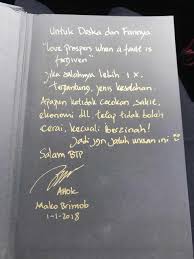 Untuk Daska dan Fannya
"Love prospers when a fault is
forgiven"
jika salahnya lebih 1 x.
tergantung, jenis kesalahan.
Apapun ketidak cocokan, sakit,
ekonomi dll tetap tidak boleh
cerai, kecuali berzinah!
Jadi jgn jatuh urusan ini
Salam BTP
Ahok
Mako Brimob
1-1-2018